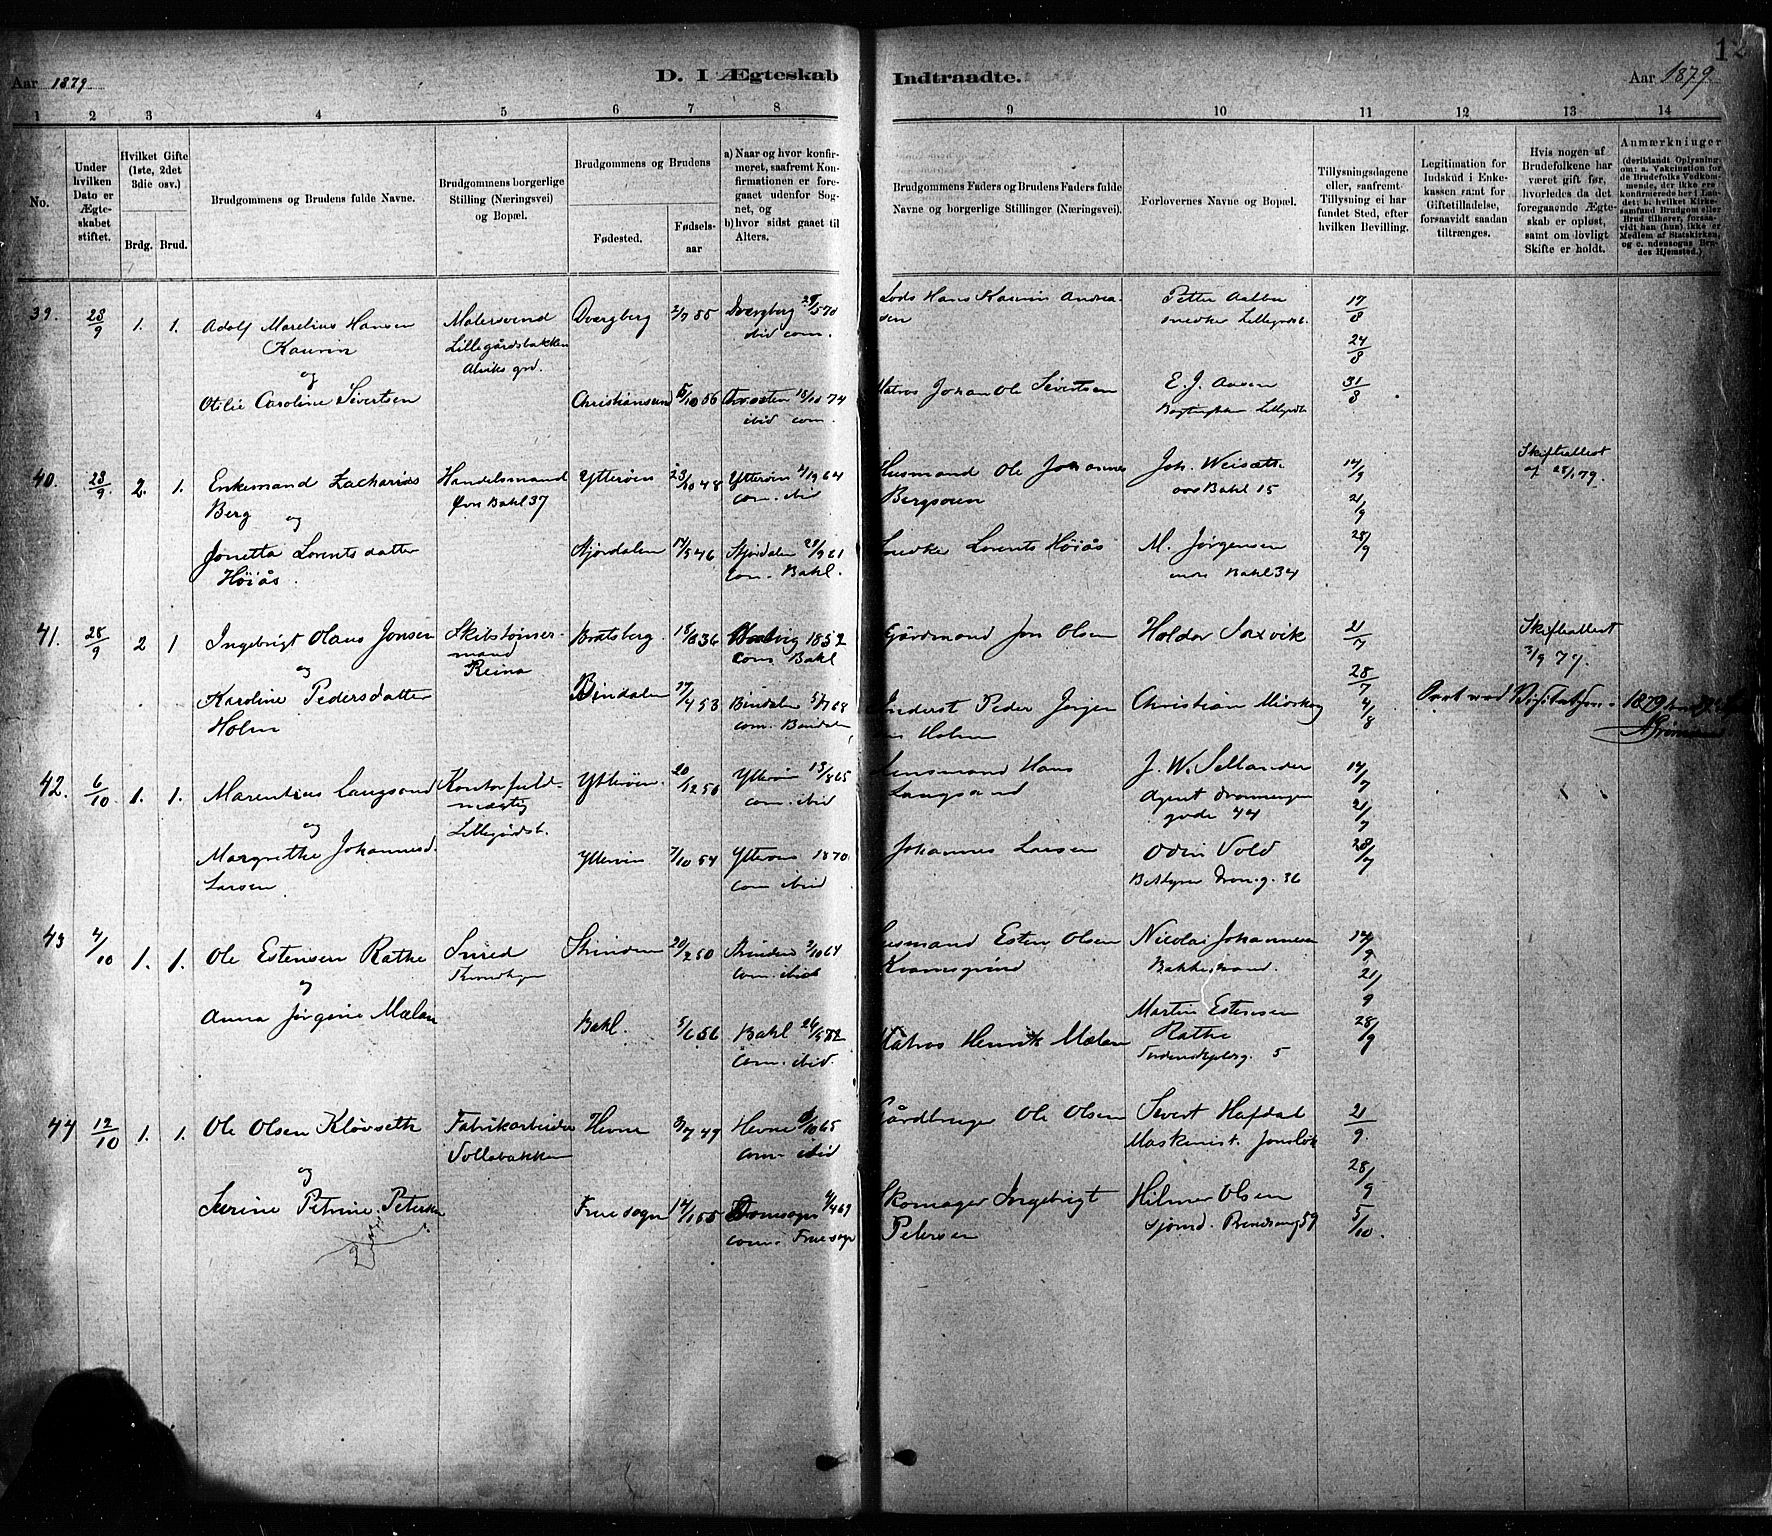 12
Aar 1879
D. I Ægteskab Indtraadte.
Aar 1879
1 2 3 4 5 6 7 8 9 10 11 12 13 14
No.
Under hvilken Dato er Ægteskabet stiftet.
Hvilket Gifte (1ste, 2det 3die osv.)
Brdg. Brud.
Brudgommens og Brudens fulde Navne.
Brudgommens borgerlige Stilling (Næringsvei) og Bopæl.
Brudgommens og Brudens
Fødested.
Fødselsaar
a) Naar og hvor konfirmeret, saafremt Konfirmationen er foregaaet udenfor Sognet, og
b) hvor sidst gaaet til Alters.
Brudgommens Faders og Brudens Faders fulde Navne og borgerlige Stillinger (Næringsvei).
Forlovernes Navne og Bopæl.
Tillysningsdagene eller, saafremt Tillysning ei har fundet Sted, efter hvilken Bevilling.
Legitimation for Indskud i Enkekassen samt for Giftetilladelse, forsaavidt saadan tiltrænges.
Hvis nogen af Brudefolkene har været gift før, hvorledes da det foregaaende Ægteskab er opløst, samt om lovligt Skifte er holdt.
Anmærkninger
(deriblandt Oplysning om: a. Vakcination for de Brudefolks Vedkommende, der ikke ere konfirmerede her i Landet; b. hvilket Kirkesamfund Brudgom eller Brud tilhører, forsaavidt han (hun) ikke er Medlem af Statskirken, og c. udensogns Brudes Hjemsted.)
39. 28/9 1. 1. Adolf Marelius Hansen Malersvend Dvergberg 2/7 55 Dvergberg
Kaurin Lillegårdsbakken ibid com.
og Alviks grd.
Otilie Caroline Sivertsen Christiansund 5/10 56 74
ibid com.
Lods Hans Kaurin Andreasen
Petter Aalbu
snedker Lillegrdsb.
17/8
24/8
31/8
Matros Johan Ole Sivertsen
E. J. Aasen
40. 28/9 2. 1. Enkemand Zacharias Handelsmand Ytterøen 23/10 48 Ytterøen 64
Berg Øvre Bakl 37 com. ibid
og
Jonetta Lorentsdatter Stjørdalen 17/5 46 Stjørdalen 61
Høiås. com. Bakl.
Husmand Ole Johannes
Bergsøen
Joh. Weisæth
øvre Bakl 15
14/9
21/9
28/9
Skifteattest
af 28/1 79.
Snedker Lorents Høiås
M. Jørgensen
nedre Bakl 34
41. 28/9 2 1 Ingebrigt Olaus Jonsen Skibstømmer- Bratsberg 18/8 36 1852
og mand com Bakl
Reina
Karoline Pedersdatter Bindalen 17/4 53 Bindalen
Holm com. Bindalen
Gårdmand Jon Olsen
Holdor Saxvik
21/7
28/7
4/8
Skifteattest
3/9 79.
Inderst Peder Jørgen
Holm
Christian
ved Visitatsen 1879
42. 6/10. 1. 1. Marentius Langsand Kontorfuld- Ytterøen. 20/12 56 Ytterøen 13/8 65
og mægtig com. ibid
Lillegårdsb.
Margrethe Johannesd. Ytterøen 7/10 54 Ytterøen 1870
Larsen com ibid
Lensmand Hans
Langsand
J. W. Sellander
Agent Dronningens
gade 44
14/7
21/7
28/7
Johannes Larsen
Odin Vold
Bestyrer Dron.g. 36
43 4/10 1. 1. Ole Estensen Rathe Smed Strinden 20/2 50 Strinden 2/10 64
og com. ibid
Anna Jørgine Mælan Bakl. 5/6 56 Bakl 26/5 72
com. ibid.
Husmand Esten Olsen
Kramsgrind
Nicolai Johannesen
Bakkestrand.
14/9
21/9
28/9
Matros Henrik Mælan
Martin Estensen
Rathe
5
44 12/10 1. 1. Ole Olsen Kløvseth Fabrikarbeider Hevne 3/7 49 Hevne 65
og Vollabakken com. ibid
Serine Petrine Petersen Fruesogn 14/1 55 Domsogn 4/4 69
com. Fruesogn
Gårdbruger Ole Olsen
Sivert Hafdal
Maskinist.
21/9.
28/9
5/10.
Skomager Ingebrigt
Petersen
Hilmer Olsen
Sjømd. 59